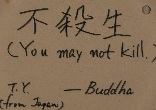 不殺生
(You may not kill.)
T.Y. — Buddha
(from Japan)